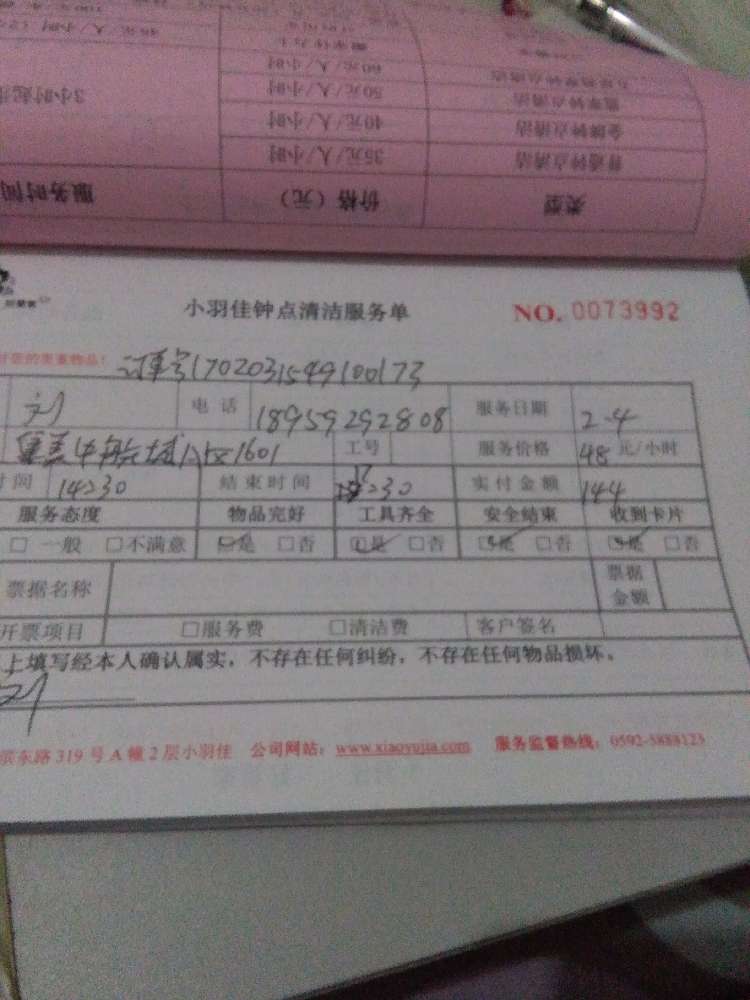 45元/人/小时
60元/人/小时
五星级钟点清洁
50元/人/小时
管家钟点清洁
3小时起
40元/人/小时
金牌钟点清洁
35元/人/小时
普通钟点清洁
服务时间
价格（元）
类型
小羽佳钟点清洁服务单
NO. 0073992
您的贵重物品！
订单号1702031549100173
刘
电话
18959292808
服务日期
2-4
中航城A区1601
工号
服务价格
48元/小时
时间
14:30
结束时间
17:30
实付金额
144
服务态度 物品完好 工具齐全 安全结束 收到卡片
□ 一般 □不满意 □是 □否 □是 □否 □是 □否 □是 □否
票据名称
票据金额
开票项目 □服务费 □清洁费 客户签名
上填写经本人确认属实，不存在任何纠纷，不存在任何物品损坏。
刘
滨东路319号A幢2层小羽佳 公司网站：www.xiaoyujia.com 服务监督热线：0592-5888123